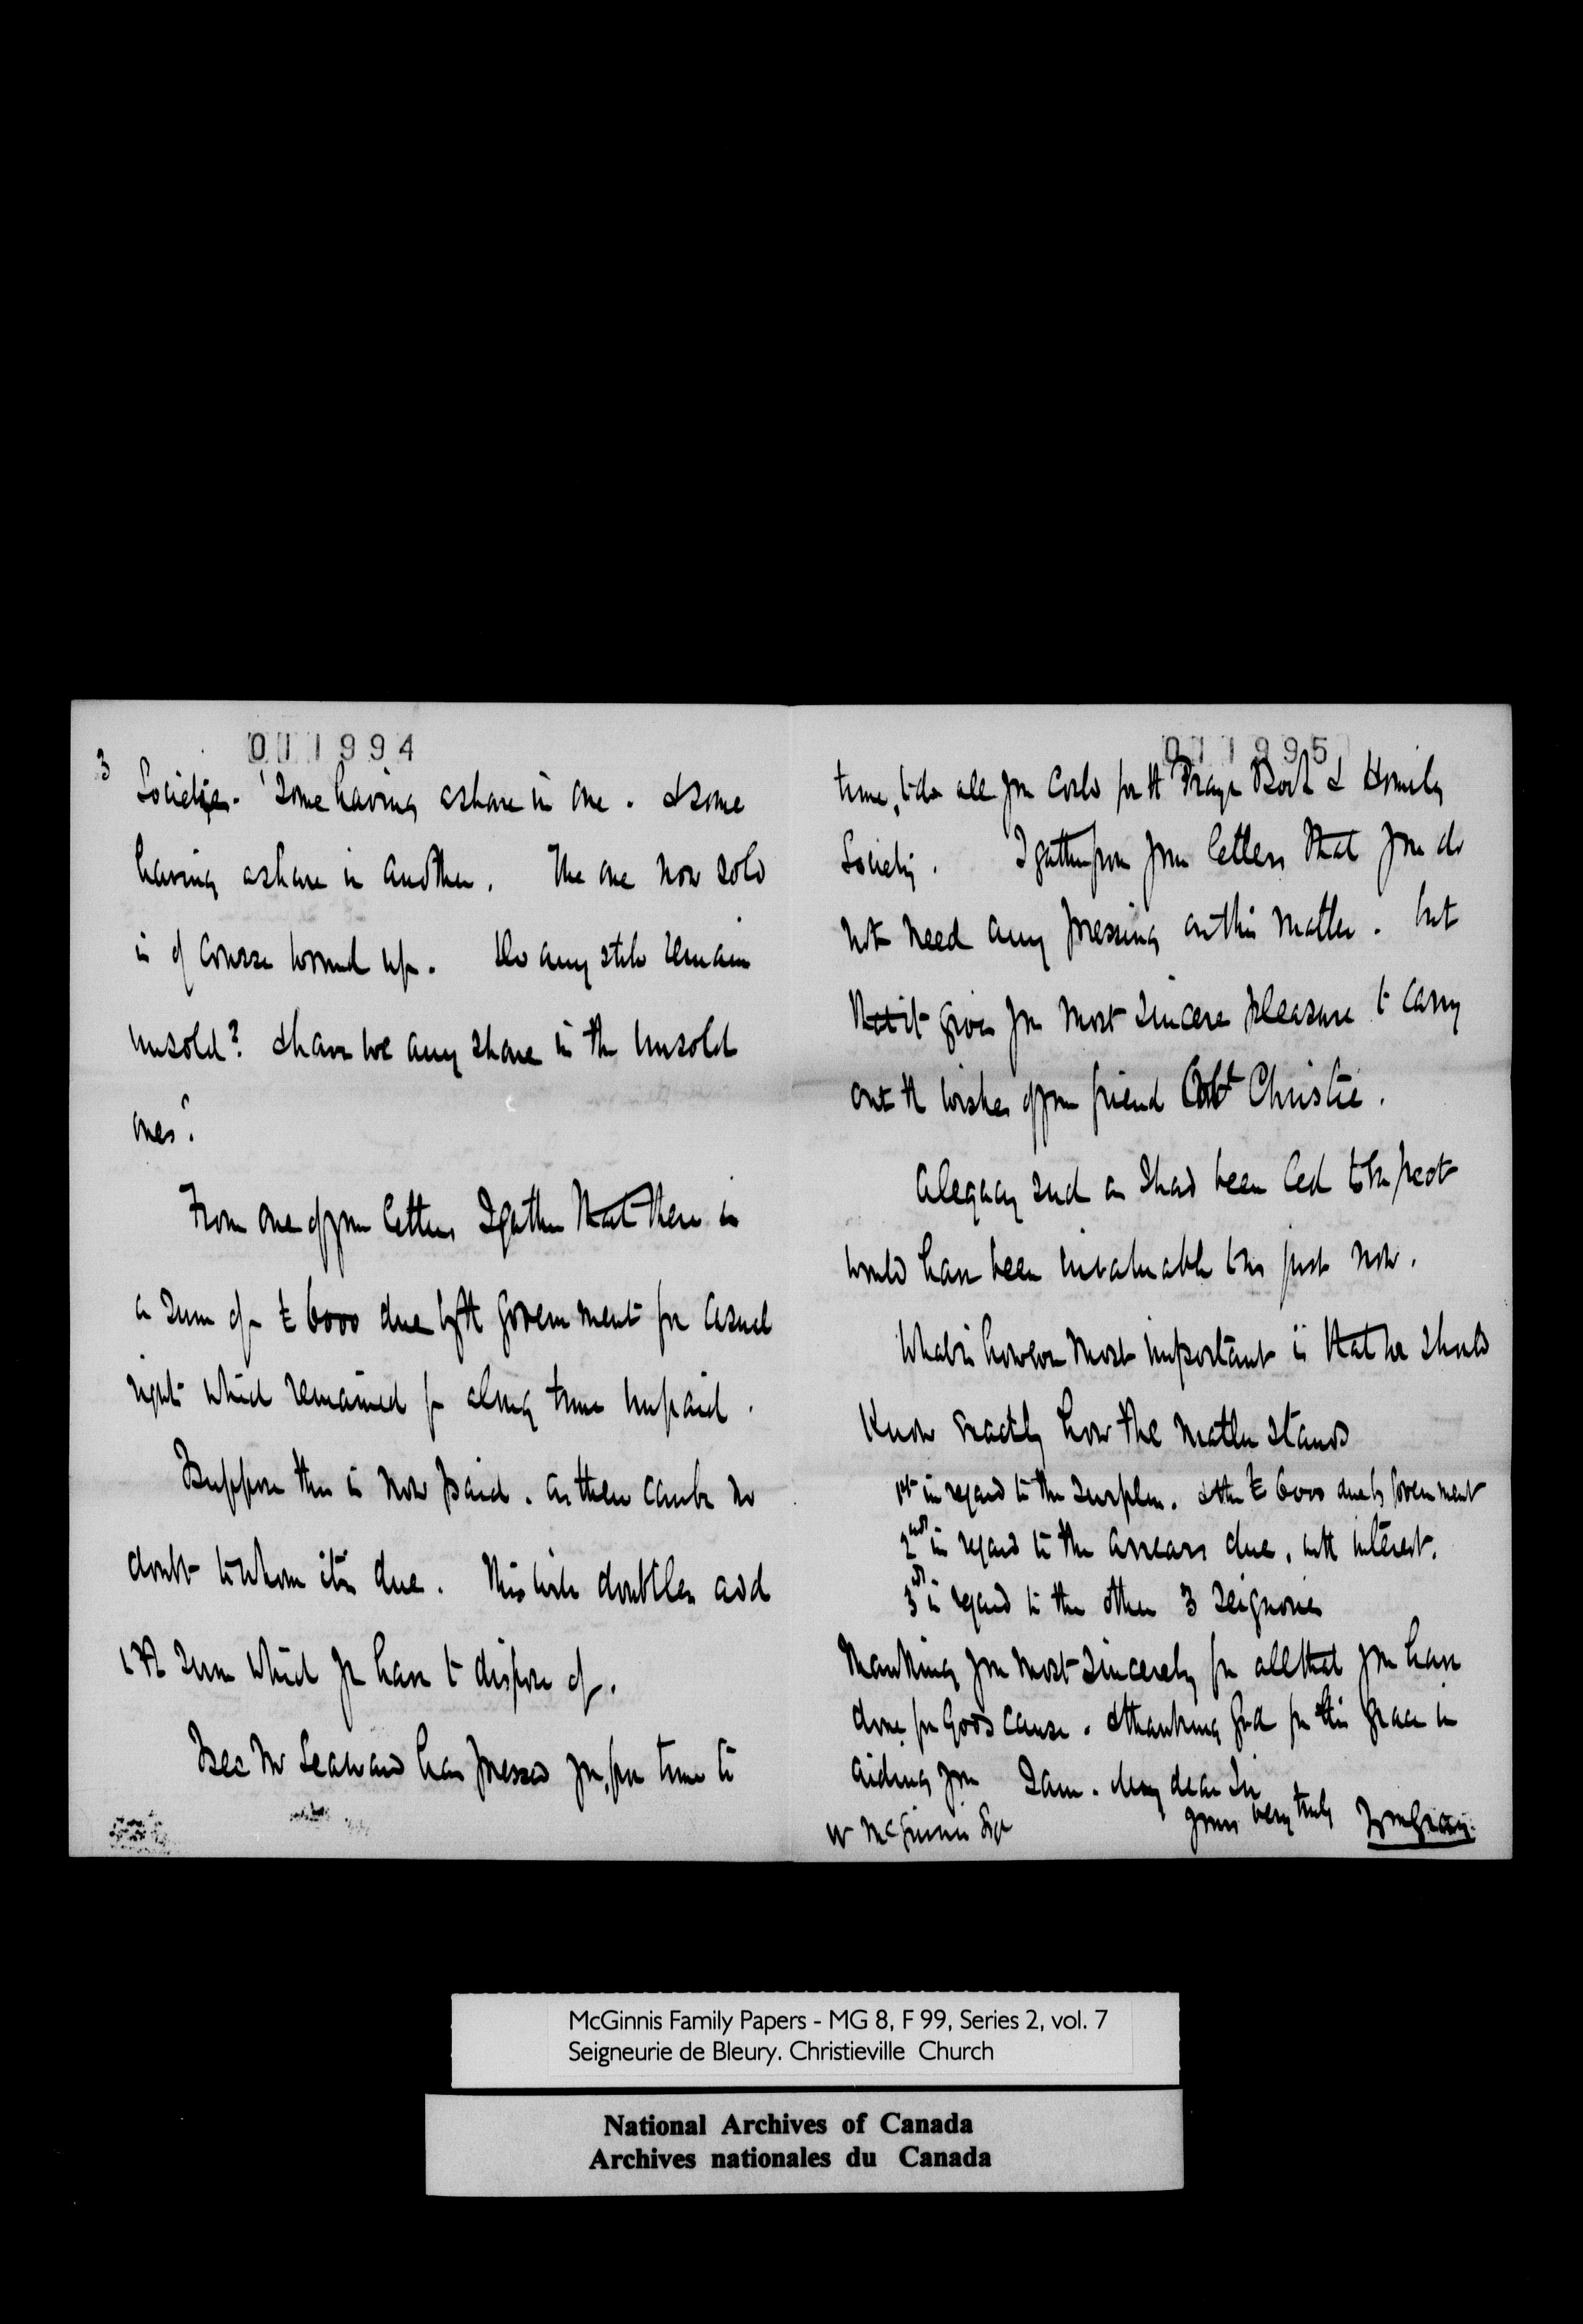 011994
3
Societies. Some having a share in one. & some
having a share in another. The one now sold
is of course wound up. Do any still remain
unsold? & have we any share in the unsold
ones?
From one of your letters I gather that there is
a sum of £6000 due by the Government for casual
right which remained for a long time unpaid.
I suppose this is now paid. as there can be no
doubt to whom it is due. This will doubtless add
to the sum which you have to dispose of.
I see Mr Seaward has pressed you, from time to
011995
time, to do all you could for the Prayer Book & Homily
Society. I gather from your letters that you do
not need any pressing on this matter. but
that it gives you most sincere pleasure to carry
out the wishes of your friend Christie.
A legacy such as I had been led to expect
would have been invaluable to us just now.
What is however most important is that we should
know exactly how the matter stands
1st in regard to the surplus. & the £6000 due by Government
2nd in regard to the arrears due, with interest.
3rd in regard to the other 3 Seignories
Thanking you most sincerely for all that you have
done for Good cause. & thanking God for His grace in
aiding you I am. My dear Sir
yours very truly Wm Gray.
W McGinnis Esqr
McGinnis Family Papers - MG 8, F 99, Series 2, vol. 7
Seigneurie de Bleury. Christieville Church
National Archives of Canada
Archives nationales du Canada